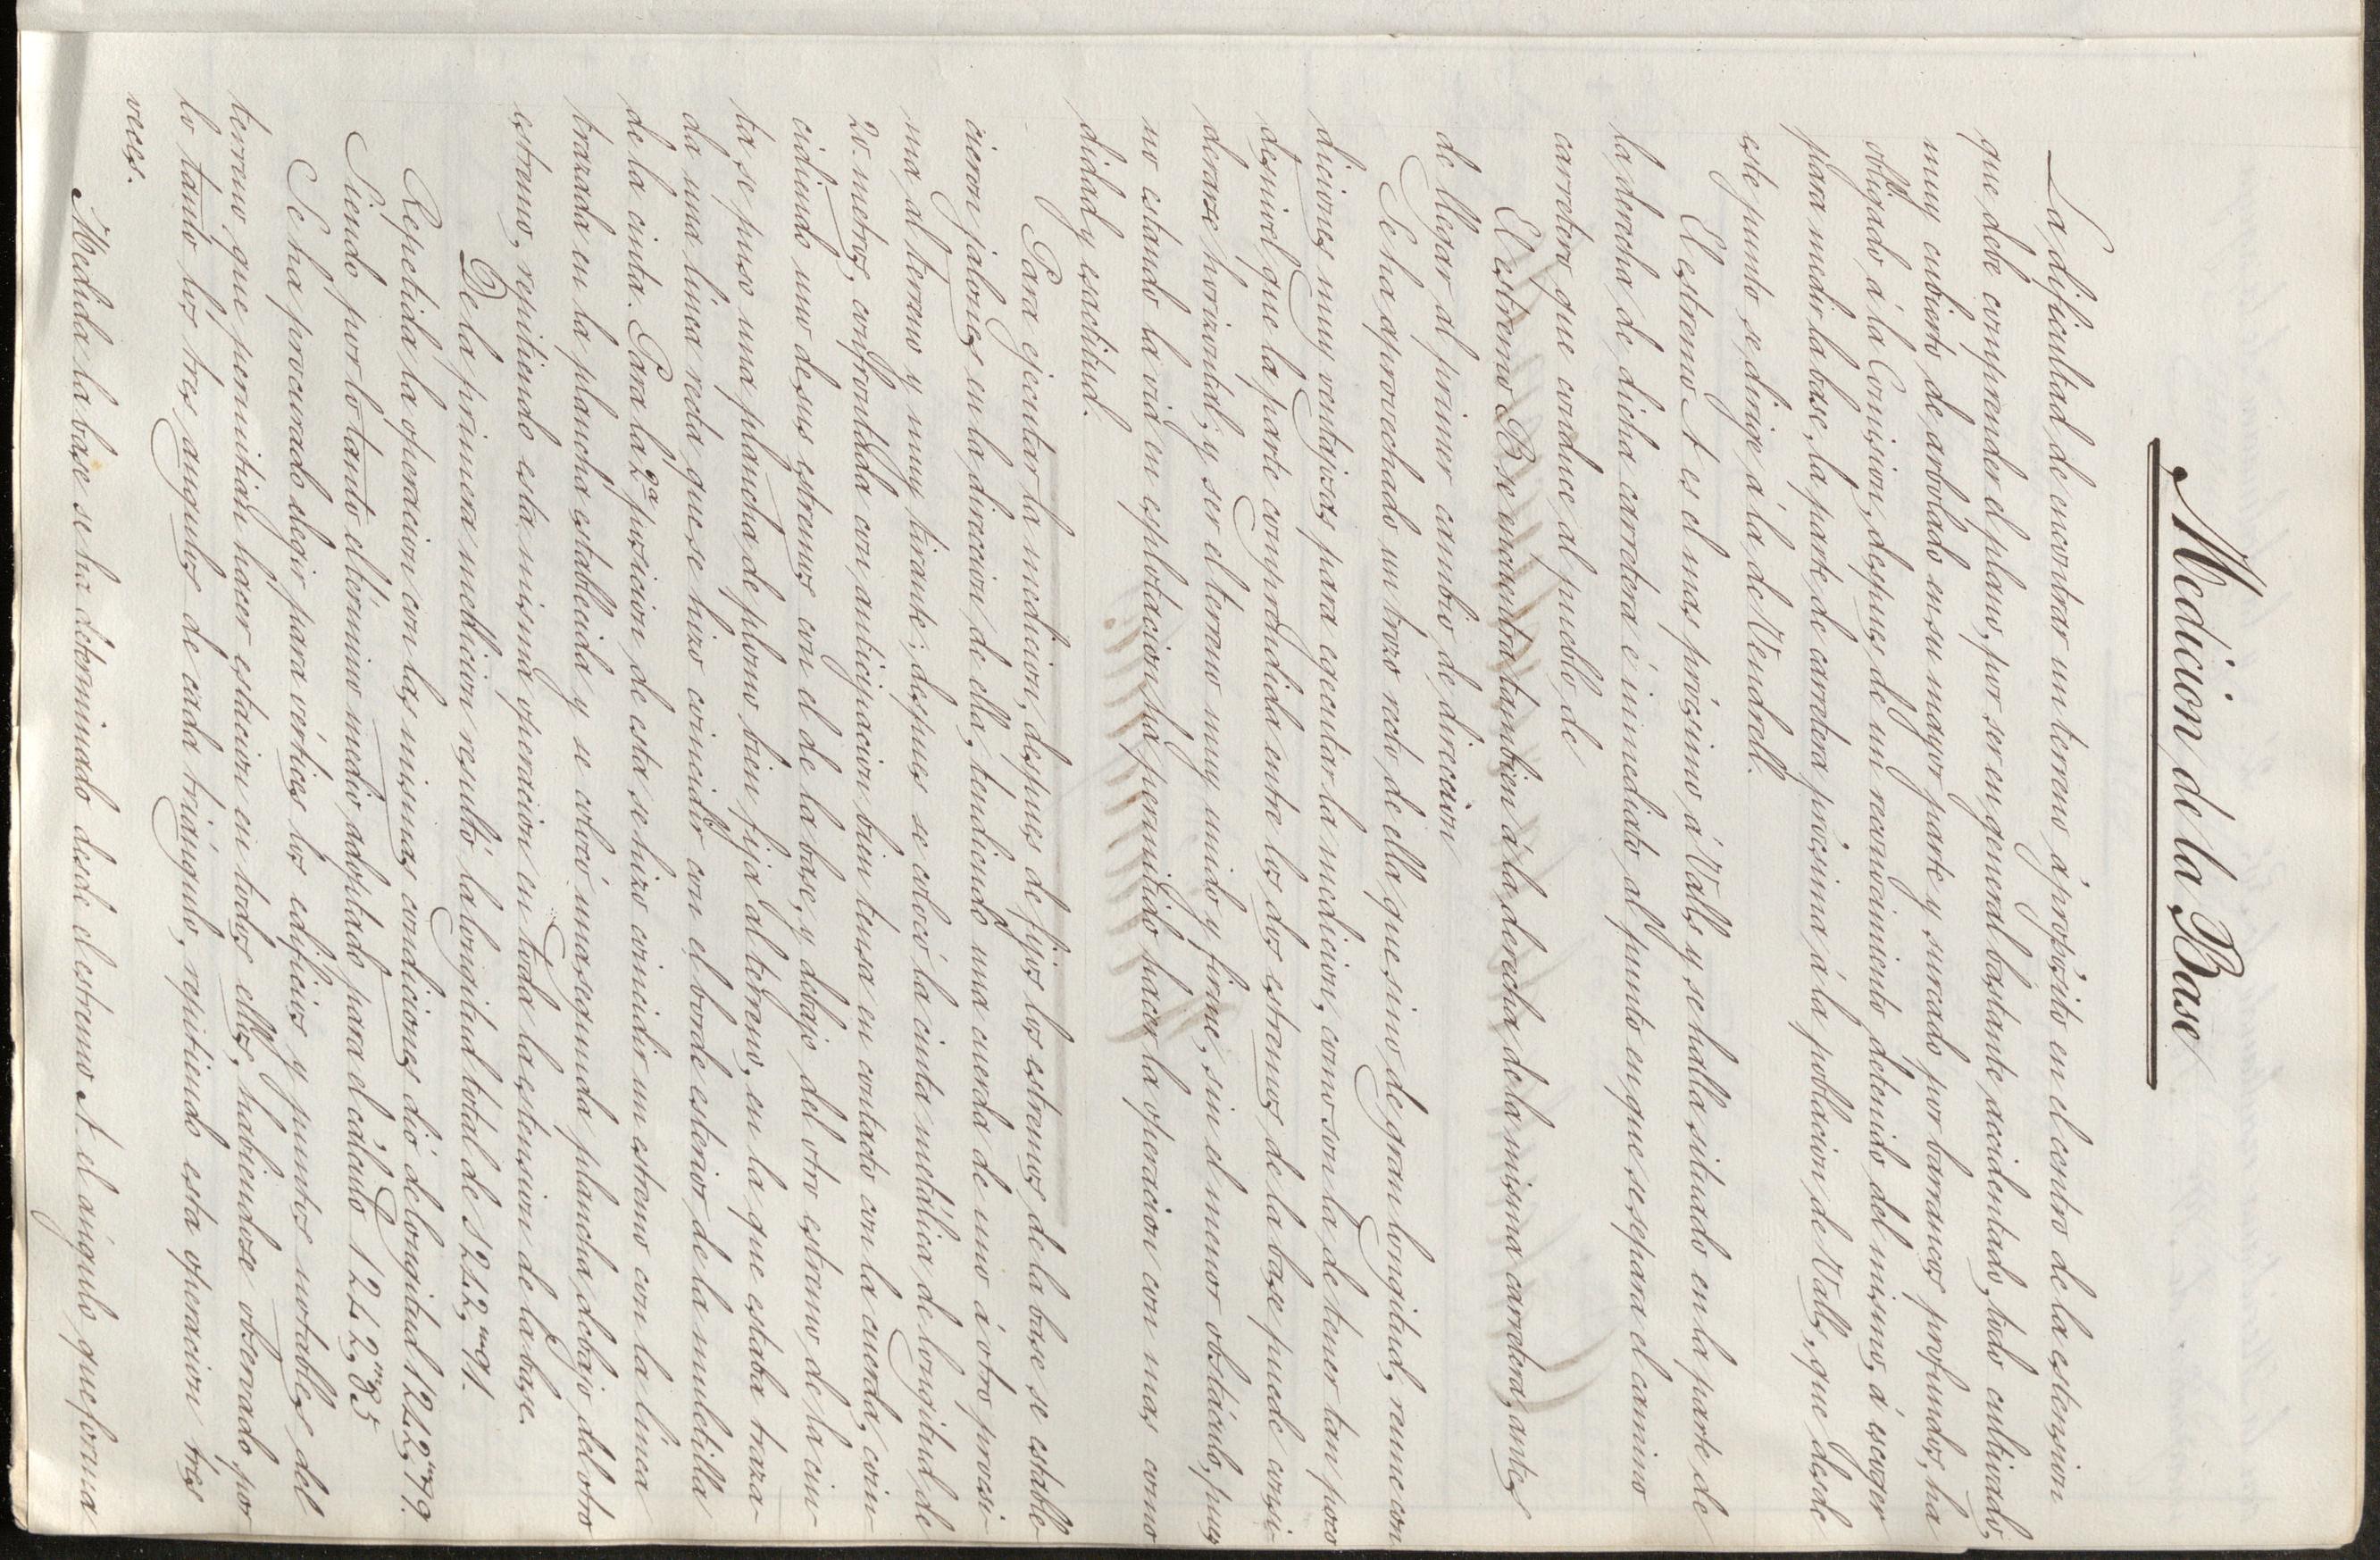 Medicion de la Base
La dificultad de encontrar un terreno á propósito en el centro de la estension
que debe comprender el plano, por ser en general bastante accidentado, todo cultivado,
muy cubierto de arbolado en su mayor parte y surcado por barrancos profundos, ha
obligado á la Comision, despues de un reconocimiento detenido del mismo, á escoger
para medir la base, la parte de carretera prócsima á la poblacion de Valls, que desde
este punto se dirige á la de Vendrell.
El estremo A es el mas prócsimo á Valls y se halla situado en la parte de
la derecha de dicha carretera é inmediato al punto en que se separa el camino
carretero que conduce al pueblo de
El estremo B se encuentra tambien á la derecha de la misma carretera, antes
de llegar al primer cambio de direccion
Se ha aprovechado un trozo recto de ella que sino de gran longitud, reune con
diciones muy ventajosas para egecutar la medicion, como son la de tener tan poco
desnivel que la parte comprendida entre los dos estremos de la base puede consi-
derarse horizontal, y ser el terreno muy unido y firme, sin el menor obstáculo, pues
no estando la via en esplotacion ha permitido hacer la operacion con mas como
didad y esactitud.
Para ejecutar la medicion, despues de fijos los estremos de la base se estable-
cieron jalones en la direccion de ella, tendiendo una cuerda de uno á otro procsi-
ma al terreno y muy tirante; despues se colocó la cinta metálica de longitud de
20 metros, confrontada con anticipacion bien tensa en contacto con la cuerda, coin-
cidiendo uno de sus estremos con el de la base, y debajo del otro estremo de la cin-
ta se puso una plancha de plomo bien fija al terreno, en la que estaba traza-
da una línea recta que se hizo coincidir con el borde esterior de la muletilla
de la cinta. Para la 2ª posicion de esta se hizo coincidir un estremo con la línea
trazada en la plancha establecida y se colocó una segunda plancha debajo del otro
estremo, repitiendo esta misma operacion en toda la estension de la base.
De la primera medicion resultó la longitud total de 1242,ᵐ91.
Repetida la operacion con las mismas condiciones dió de longitud 1242,ᵐ79.
Siendo por lo tanto el término medio adoptado para el cálculo 1242,ᵐ85
Se ha procurado elegir para vértices los edificios y puntos notables del
terreno que permitian hacer estacion en todos ellos, habiendose observado por
lo tanto los tres angulos de cada triángulo, repitiendo esta operacion tres
veces.
Medida la base se ha determinado desde el estremo A el ángulo que forma